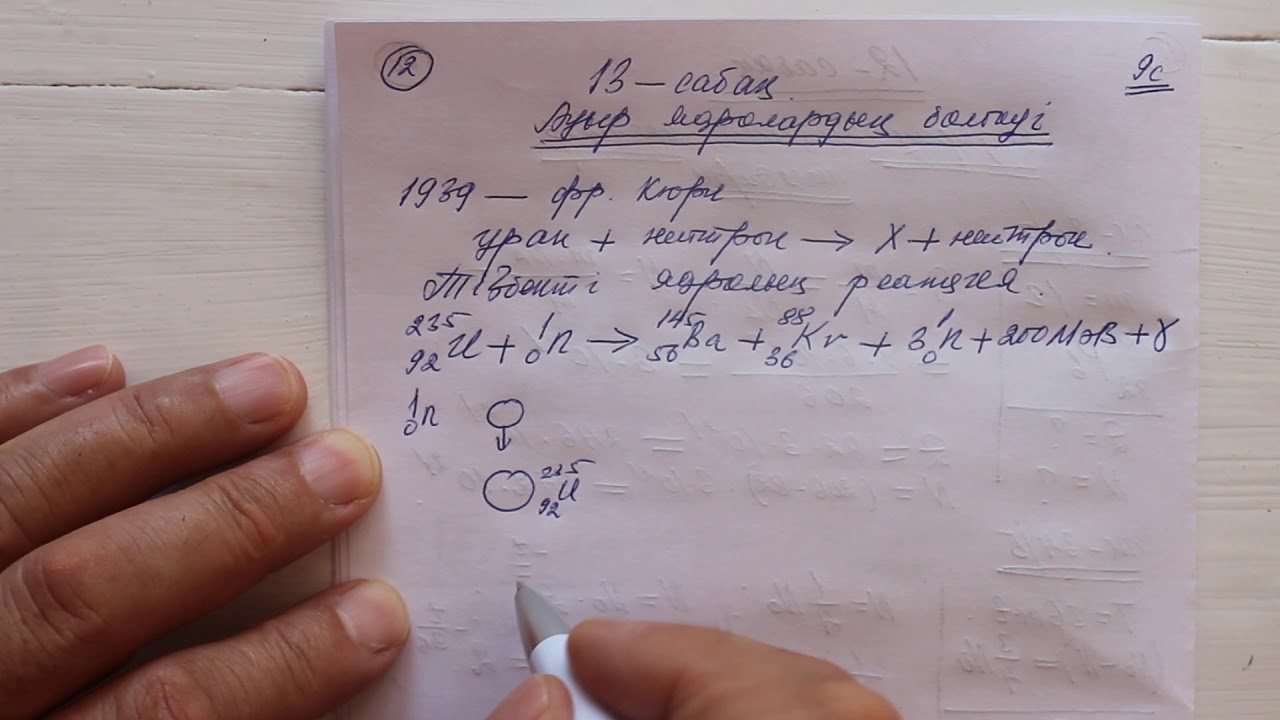 12
13 – сабақ
9с
Ауыр ядролардың бөлінуі
1939 — фр. Кюри
уран + нейтрон → X + нейтрон
Тізбекті ядролық реакция.
²³⁵₉₂U + ¹₀n → ¹⁴⁵₅₆Ba + ⁸⁸₃₆Kr + 3¹₀n + 200МэВ + γ
¹₀n
²³⁵₉₂U